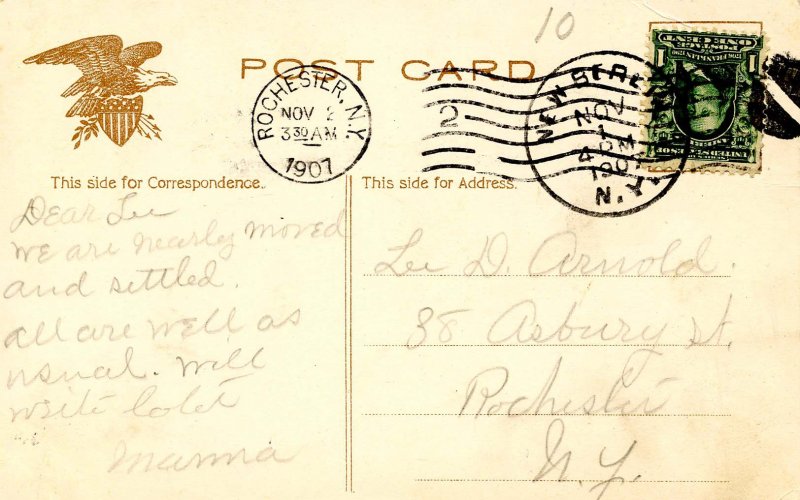 10
POST CARD
ROCHESTER, N.Y.
NOV 2
3 30 AM
1907
2
NOV
1
4 PM
1907
N.Y.
ONE CENT
1
This side for Correspondence.
This side for Address.
Dear Lee
we are nearly moved
and settled.
all are well as
usual. Will
write
Mamma
Lee D. Arnold.
38 Asbury st.
Rochester
N.Y.